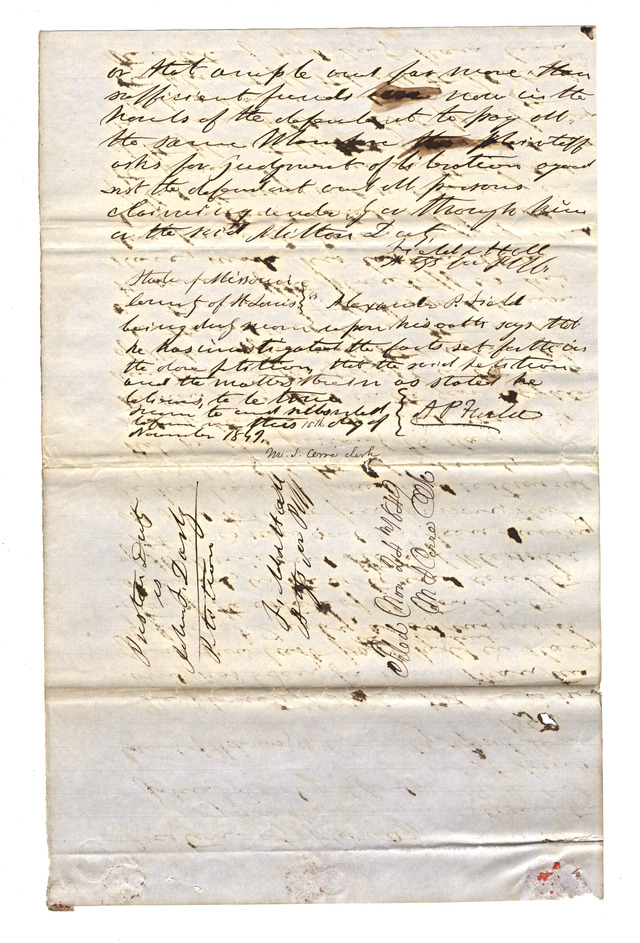 or that ample and far more than
sufficient funds are now in the
hands of the defendant to pay all
the same Wherefore the Plaintiff
asks for judgment of liberation against
the defendant and all persons
claiming under by or through him
or the said Milton Duty
Field & Hall
Attys for Plff
State of Missouri
County of St Louis ss Alexander P. Field
being duly sworn upon his oath says that
he has investigated the facts set forth in
the above petition, that the said petition
and the matters therein as stated he
believes to be true
Sworn to and subscribed
before me this 15th day of
November 1849.
A P Field
M. S. Cerre clerk
Preston Duty
vs
John F Darby
Petition
Field & Hall
Attys for Plff
Filed Nov 1849
M S Cerre Clk